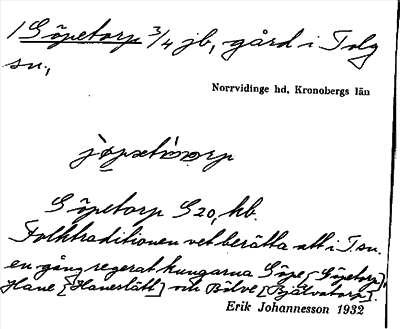 1 Göpetorp 3/4 jb, gård i Tolg
sn.,
Norrvidinge hd, Kronobergs län
Göpetorp G20, kb.
Folktraditionen vet berätta att i T. sn.
en gång regerat kungarna Göpe [Göpetorp],
Hane [Haneslätt] och Bölve [Bjälvatorp].
Erik Johannesson 1932